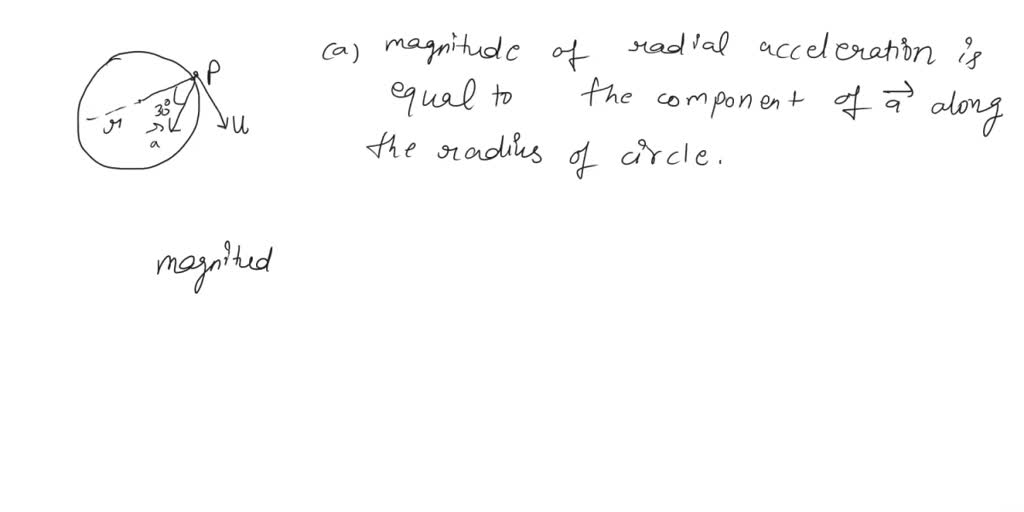 (a) magnitude of radial acceleration is
equal to the component of a⃗ along
the radius of circle.
P
30°
r
a
u
magnitued